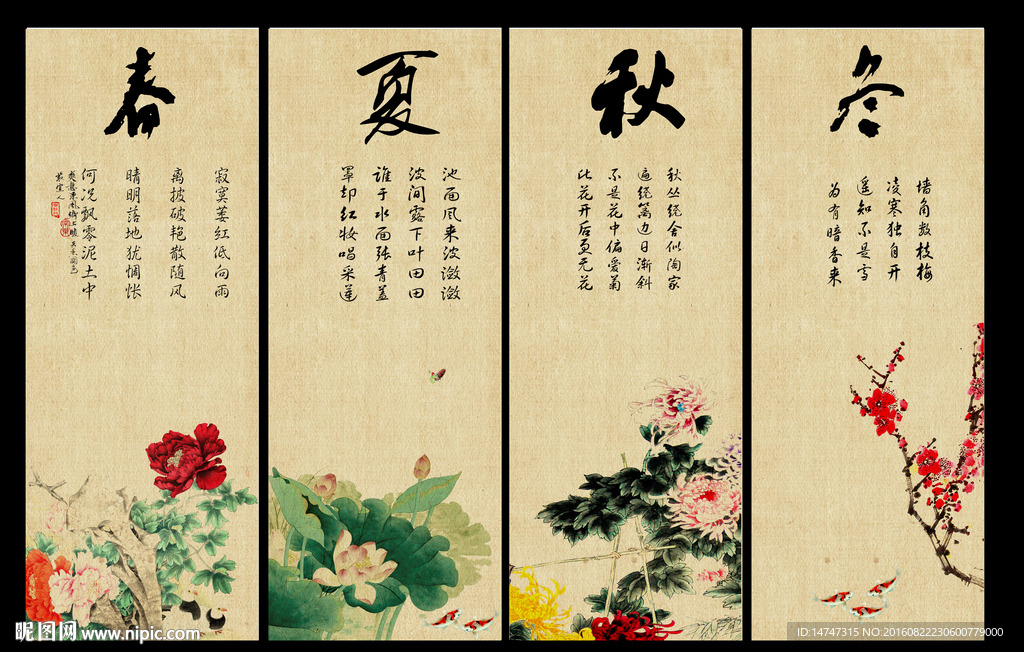 春
寂寞萎红低向雨
离披破艳散随风
晴明落地犹惆怅
何况飘零泥土中
夏
池面风来波潋潋
波间露下叶田田
谁于水面张青盖
罩却红妆唱采莲
秋
秋丛绕舍似陶家
遍绕篱边日渐斜
不是花中偏爱菊
此花开后更无花
冬
墙角数枝梅
凌寒独自开
遥知不是雪
为有暗香来
昵图网 www.nipic.com
ID:14747315 NO:20160822230600779000